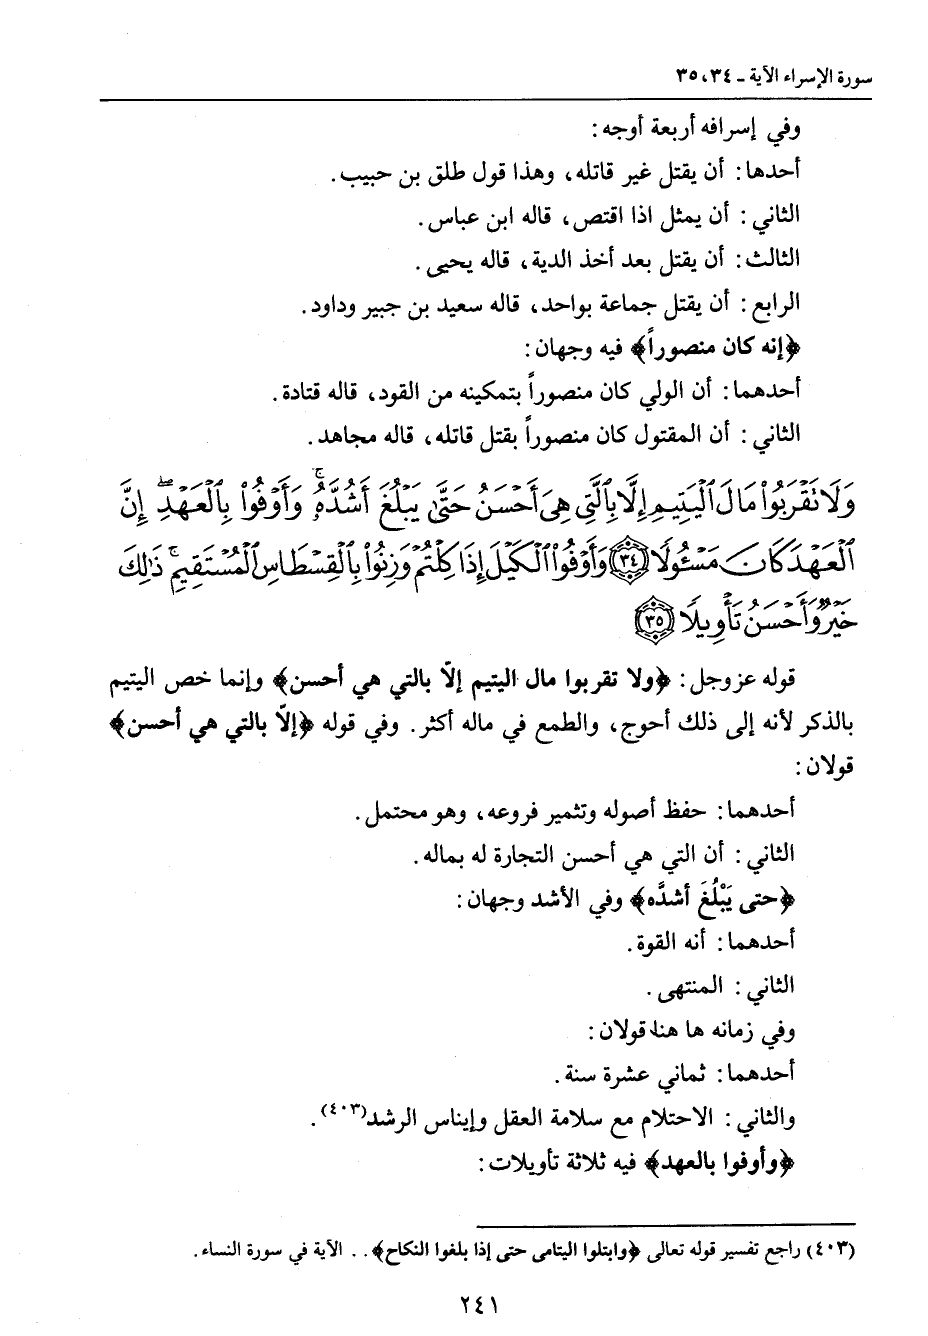 سورة الإسراء الآية ـ ٣٤، ٣٥
وفي إسرافه أربعة أوجه:
أحدها: أن يقتل غير قاتله، وهذا قول طلق بن حبيب.
الثاني: أن يمثل اذا اقتص، قاله ابن عباس.
الثالث: أن يقتل بعد أخذ الدية، قاله يحيى.
الرابع: أن يقتل جماعة بواحد، قاله سعيد بن جبير وداود.
﴿إنه كان منصوراً﴾ فيه وجهان:
أحدهما: أن الولي كان منصوراً بتمكينه من القود، قاله قتادة.
الثاني: أن المقتول كان منصوراً بقتل قاتله، قاله مجاهد.
وَلَا نَقۡرَبُواْ مَالَ ٱلۡيَتِيمِ إِلَّا بِٱلَّتِي هِيَ أَحۡسَنُ حَتَّىٰ يَبۡلُغَ أَشُدَّهُۥۚ وَأَوۡفُواْ بِٱلۡعَهۡدِۖ إِنَّ
ٱلۡعَهۡدَ كَانَ مَسۡـُٔولٗا ﴿٣٤﴾ وَأَوۡفُواْ ٱلۡكَيۡلَ إِذَا كِلۡتُمۡ وَزِنُواْ بِٱلۡقِسۡطَاسِ ٱلۡمُسۡتَقِيمِۚ ذَٰلِكَ
خَيۡرٞ وَأَحۡسَنُ تَأۡوِيلٗا ﴿٣٥﴾
قوله عز وجل: ﴿ولا تقربوا مال اليتيم إلاّ بالتي هي أحسن﴾ وإنما خص اليتيم
بالذكر لأنه إلى ذلك أحوج، والطمع في ماله أكثر. وفي قوله ﴿إلاّ بالتي هي أحسن﴾
قولان:
أحدهما: حفظ أصوله وتثمير فروعه، وهو محتمل.
الثاني: أن التي هي أحسن التجارة له بماله.
﴿حتى يَبْلُغَ أشدَّه﴾ وفي الأشد وجهان:
أحدهما: أنه القوة.
الثاني: المنتهى.
وفي زمانه ها هنا قولان:
أحدهما: ثماني عشرة سنة.
والثاني: الاحتلام مع سلامة العقل وإيناس الرشد(٤٠٣).
﴿وأوفوا بالعهد﴾ فيه ثلاثة تأويلات:
(٤٠٣) راجع تفسير قوله تعالى ﴿وابتلوا اليتامى حتى إذا بلغوا النكاح﴾.. الآية في سورة النساء.
٢٤١